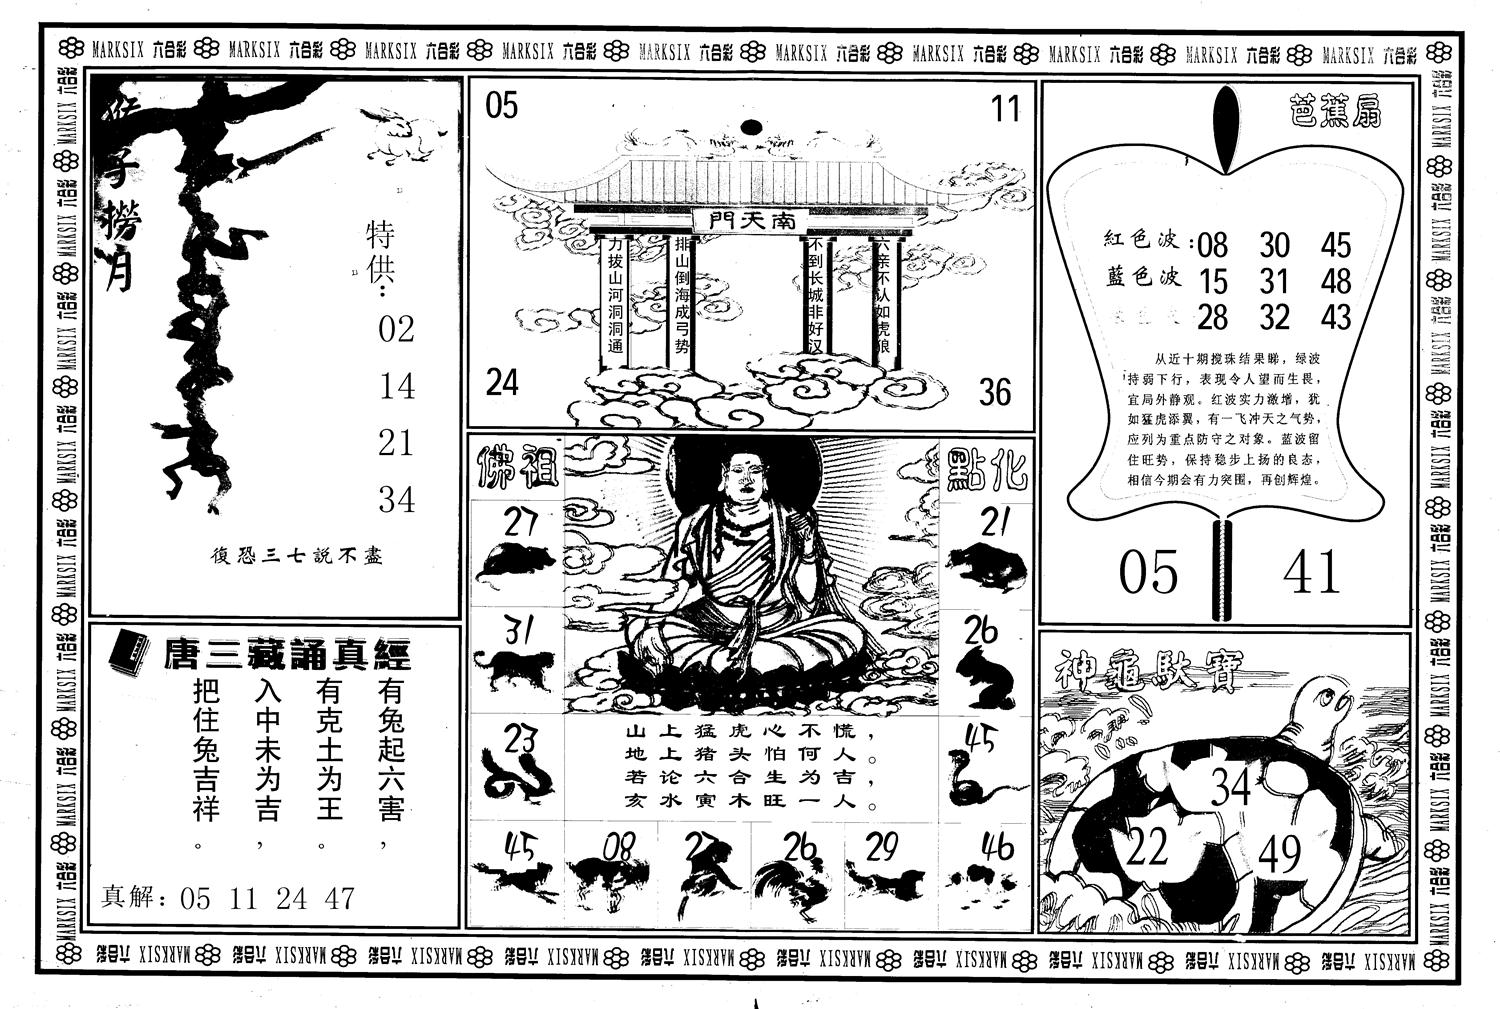 MARKSIX 六合彩 MARKSIX 六合彩 MARKSIX 六合彩 MARKSIX 六合彩 MARKSIX 六合彩 MARKSIX 六合彩 MARKSIX 六合彩 MARKSIX 六合彩 MARKSIX 六合彩 MARKSIX 六合彩
猴子撈月
特供：
02
14
21
34
復恐三七説不盡
唐三藏誦真經
有兔起六害，
有克土为王。
入中未为吉，
把住兔吉祥。
真解：05 11 24 47
05
11
南天門
六亲不认如虎狼
不到长城非好汉
排山倒海成弓势
力拔山河洞洞通
24
36
佛祖
點化
27
21
31
26
23
45
山上猛虎心不慌，
地上猪头怕何人。
若论六合生为吉，
亥水寅木旺一人。
45
08
27
26
29
46
芭蕉扇
紅色波：08 30 45
藍色波 15 31 48
28 32 43
从近十期搅珠结果睇，绿波
持弱下行，表现令人望而生畏，
宜局外静观。红波实力激增，犹
如猛虎添翼，有一飞冲天之气势，
应列为重点防守之对象。蓝波留
住旺势，保持稳步上扬的良态，
相信今期会有力突围，再创辉煌。
05
41
神龜馱寶
34
22
49